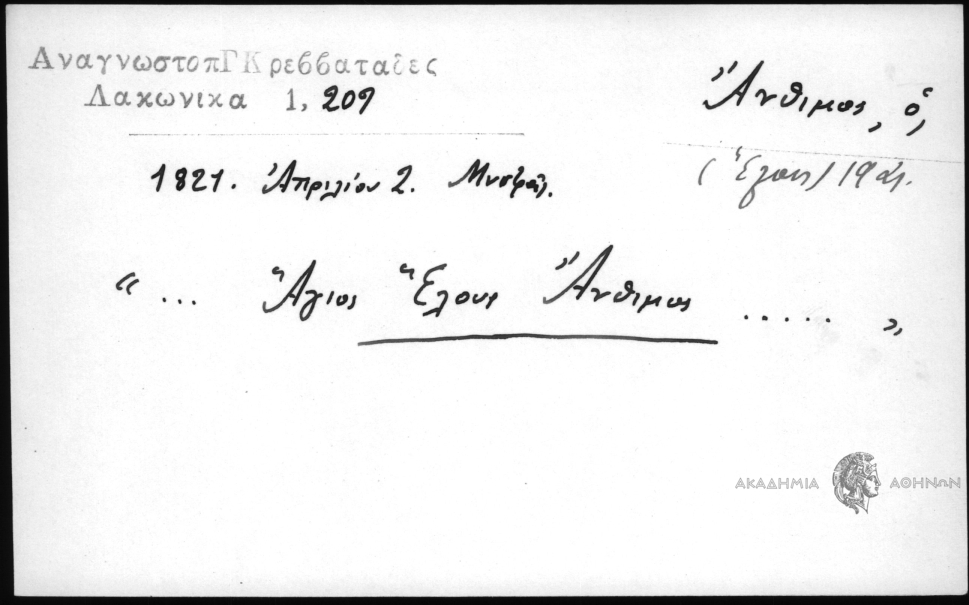 ΑναγνωστοπΓΚρεββαταδες
Λακωνικα 1, 209
Ἄνθιμος, ὁ,
(Ἕλους) 19 αἰ.
1821. Ἀπριλίου 2. Μυστρᾶς.
“ ... Ἅγιος Ἕλους Ἄνθιμος ..... ”
ΑΚΑΔΗΜΙΑ ΑΘΗΝΩΝ